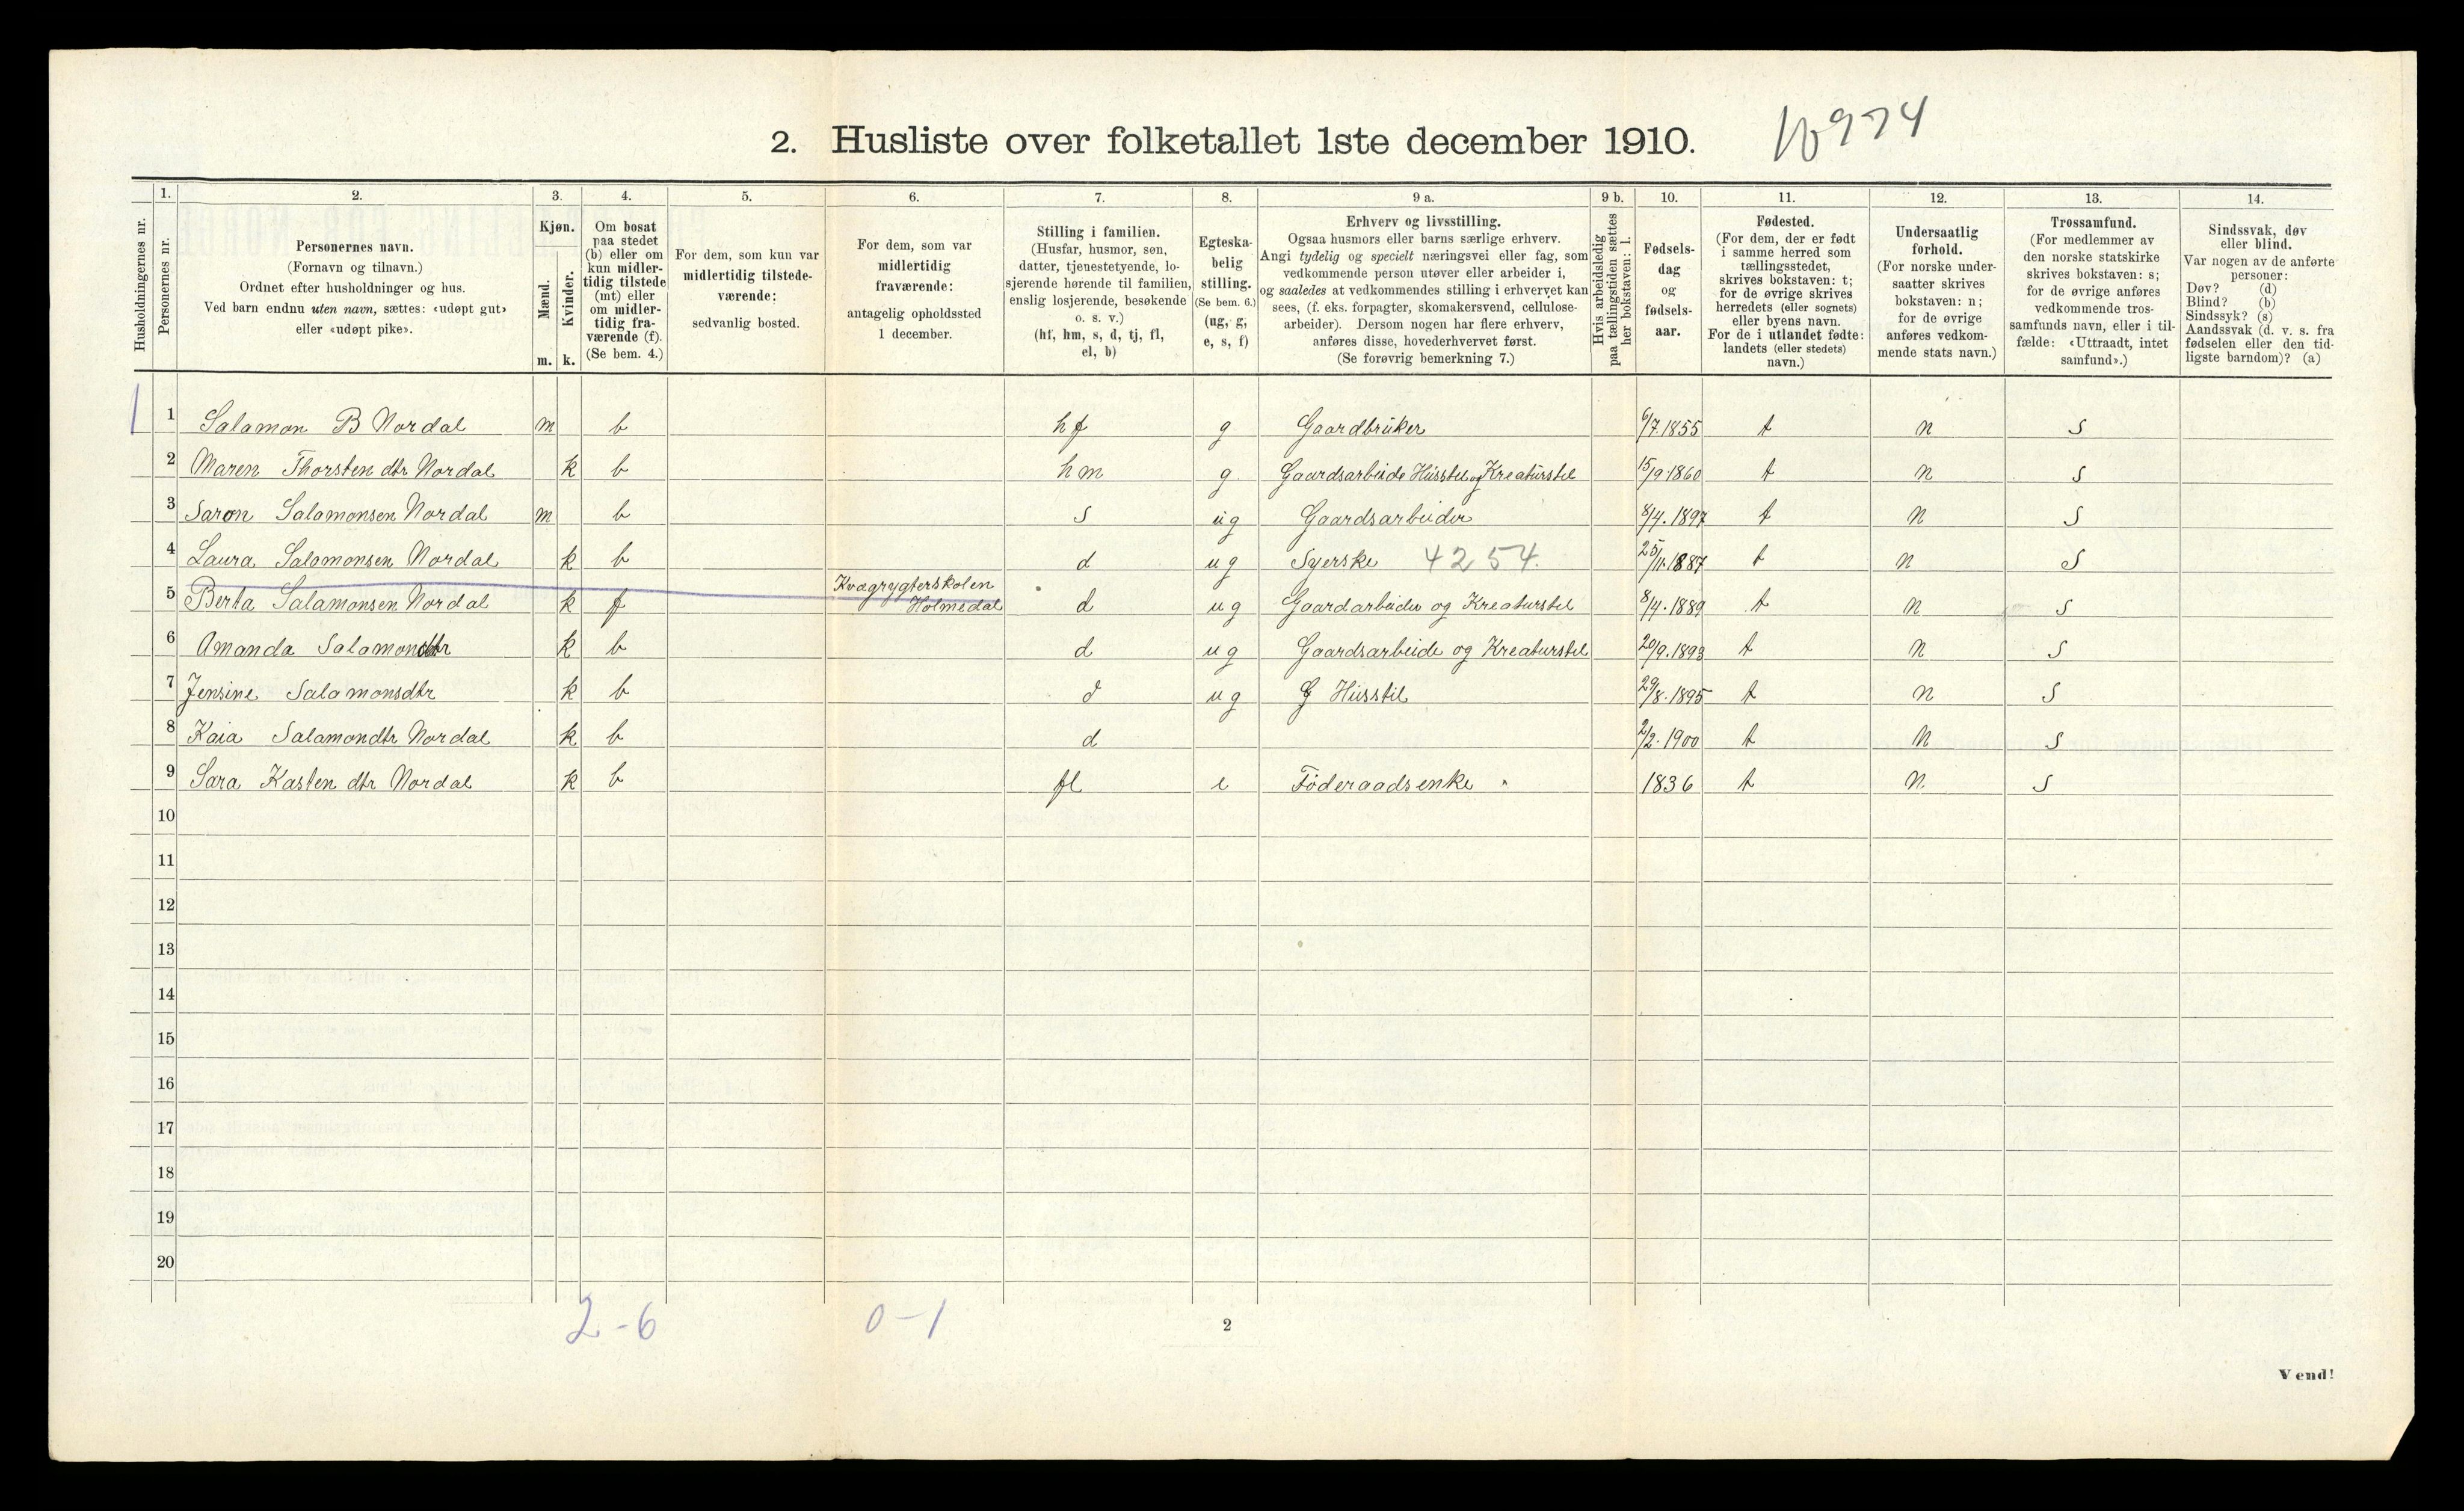 2. Husliste over folketallet 1ste december 1910.
Husholdningernes nr.
1.
Personernes nr.
2.
Personernes navn.
(Fornavn og tilnavn.)
Ordnet efter husholdninger og hus.
Ved barn endnu uten navn, sættes: «udøpt gut»
eller «udøpt pike».
3.
Kjøn.
Mænd.
Kvinder.
m. k.
4.
Om bosat
paa stedet
(b) eller om
kun midler-
tidig tilstede
(mt) eller
om midler-
tidig fra-
værende (f).
(Se bem. 4.)
5.
For dem, som kun var
midlertidig tilstede-
værende:
sedvanlig bosted.
6.
For dem, som var
midlertidig
fraværende:
antagelig opholdssted
1 december.
7.
Stilling i familien.
(Husfar, husmor, søn,
datter, tjenestetyende, lo-
sjerende hørende til familien,
enslig losjerende, besøkende
o. s. v.)
(hf, hm, s, d, tj, fl,
el, b)
8.
Egteska-
belig
stilling.
(Se bem. 6.)
(ug, g,
e, s, f)
9 a.
Erhverv og livsstilling.
Ogsaa husmors eller barns særlige erhverv.
Angi tydelig og specielt næringsvei eller fag, som
vedkommende person utøver eller arbeider i,
og saaledes at vedkommendes stilling i erhvervet kan
sees, (f. eks. forpagter, skomakersvend, cellulose-
arbeider). Dersom nogen har flere erhverv,
anføres disse, hovederhvervet først.
(Se forøvrig bemerkning 7.)
9 b.
Hvis arbeidsledig
paa tællingstiden sættes
her bokstaven: l.
10.
Fødsels-
dag
og
fødsels-
aar.
11.
Fødested.
(For dem, der er født
i samme herred som
tællingsstedet,
skrives bokstaven: t;
for de øvrige skrives
herredets (eller sognets)
eller byens navn.
For de i utlandet fødte:
landets (eller stedets)
navn.)
12.
Undersaatlig
forhold.
(For norske under-
saatter skrives
bokstaven: n;
for de øvrige
anføres vedkom-
mende stats navn.)
13.
Trossamfund.
(For medlemmer av
den norske statskirke
skrives bokstaven: s;
for de øvrige anføres
vedkommende tros-
samfunds navn, eller i til-
fælde: «Uttraadt, intet
samfund».)
14.
Sindssvak, døv
eller blind.
Var nogen av de anførte
personer:
Døv? (d)
Blind? (b)
Sindssyk? (s)
Aandssvak (d. v. s. fra
fødselen eller den tid-
ligste barndom)? (a)
1 Salamon B Nordal m b hf g Gaardbruker 6/7.1855 t n S
2 Maren Thorsten dtr Nordal k b hm g Gaardsarbeide Husstel og Kreaturstel 15/9.1860 t n S
3 Saron Salamonsen Nordal m b s ug Gaardsarbeider 8/4.1897 t n S
4 Laura Salomonsen Nordal k b d ug Syerske 4254. 25/11.1887 t n S
Kvægrygterskolen
5 Berta Salamonsen Nordal k f Holmedal d ug Gaardarbeider og Kreaturstel 8/4.1889 t n S
6 Amanda Salamondtr k b d ug Gaardsarbeide og Kreaturstel 20/9.1893 t n S
7 Jensine Salamonsdtr k b d ug G Husstel 29/8.1895 t n S
8 Kaia Salamondtr Nordal k b d 2/2.1900 t n S
9 Sara Kasten dtr Nordal k b fl e Føderaadsenke 1836 t n S
10
11
12
13
14
15
16
17
18
19
20
2-6 0-1
2
Vend!